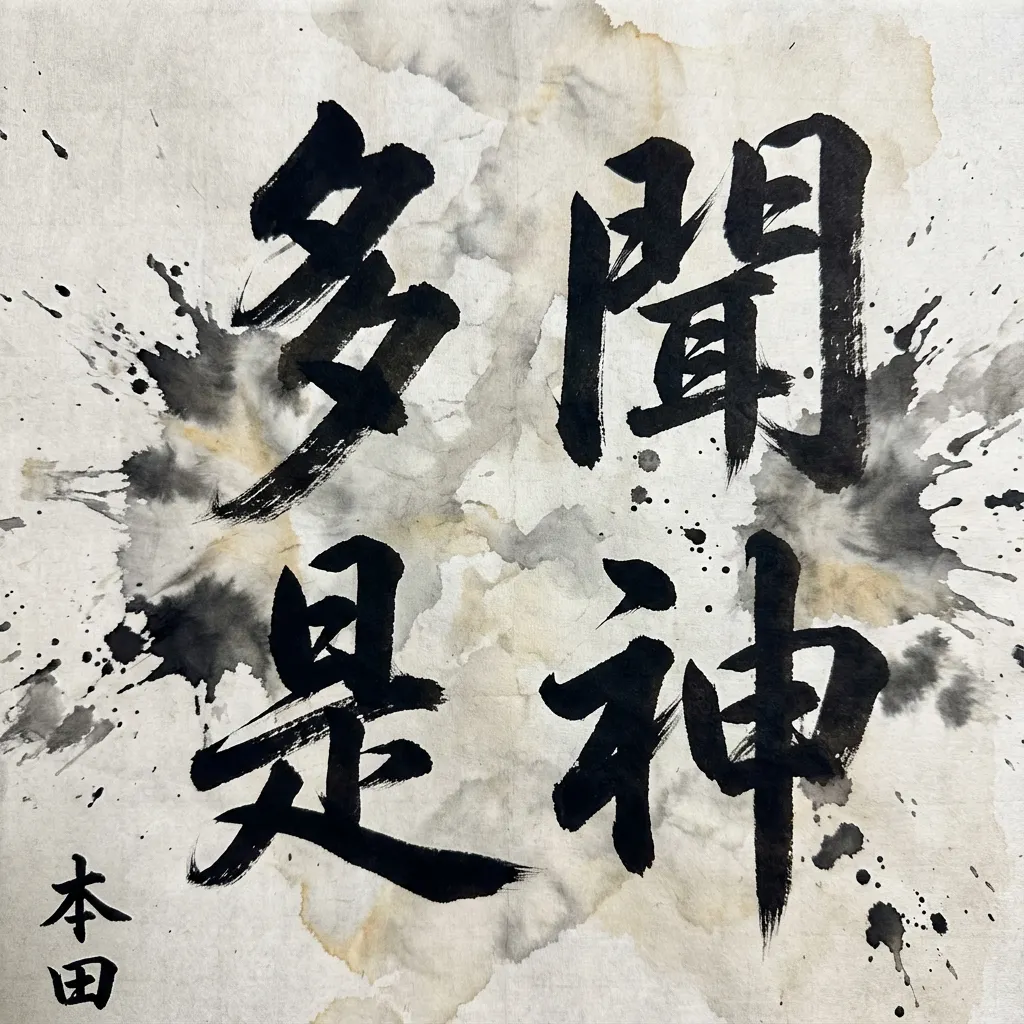 多聞
是神
本田